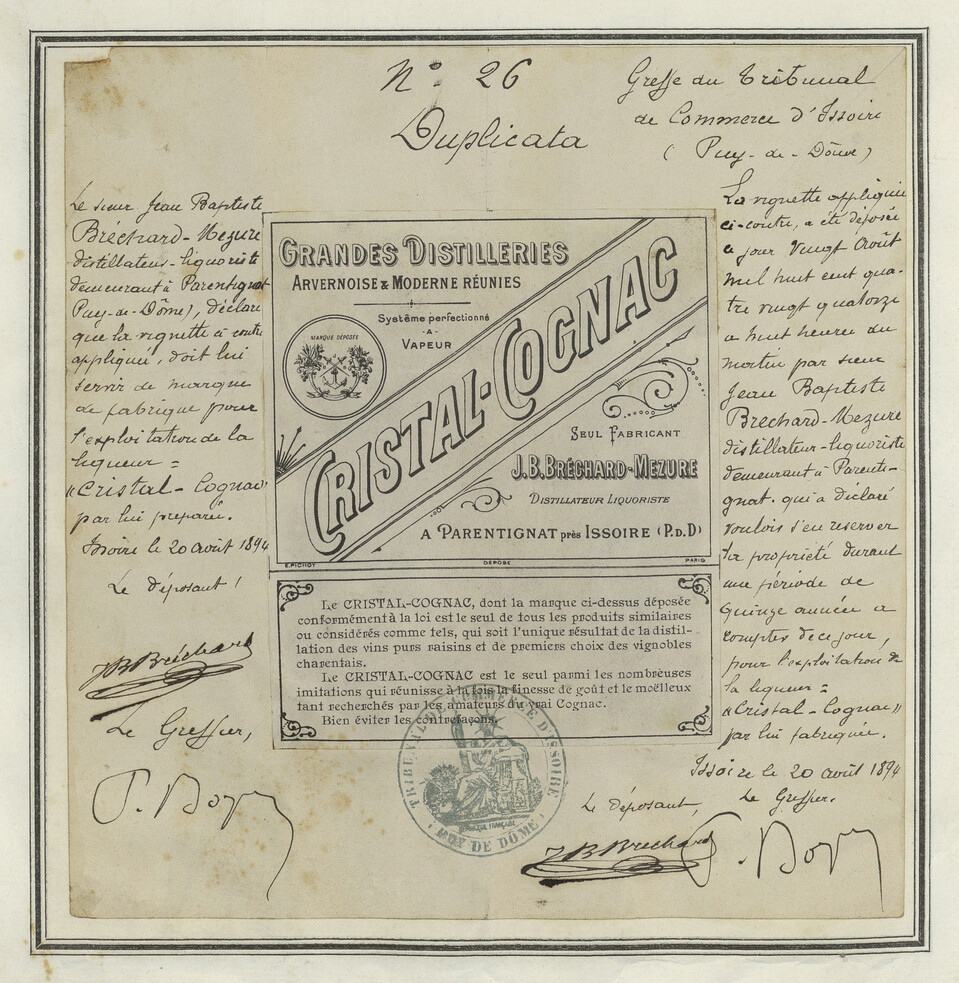 N° 26
Duplicata
Greffe du Tribunal
de Commerce d'Issoire
(Puy-de-Dôme)
Le sieur Jean Baptiste
Bréchard-Mezure
distillateur-liquoriste
demeurant à Parentignat
Puy-de-Dôme), déclare
que la vignette ci contre
appliquée, doit lui
servir de marque
de fabrique pour
l'exploitation de la
liqueur =
"Cristal-Cognac"
par lui préparée.
Issoire le 20 août 1894
Le déposant !
JB Bréchard
Le Greffier,
GRANDES DISTILLERIES
ARVERNOISE & MODERNE RÉUNIES
Système perfectionné
-A-
VAPEUR
MARQUE DÉPOSÉE
CRISTAL-COGNAC
SEUL FABRICANT
J.B. BRÉCHARD-MEZURE
DISTILLATEUR LIQUORISTE
A PARENTIGNAT près ISSOIRE (P.d.D)
E. PICHOT
DÉPOSÉ
PARIS
Le CRISTAL-COGNAC, dont la marque ci-dessus déposée
conformément à la loi est le seul de tous les produits similaires
ou considérés comme tels, qui soit l'unique résultat de la distil-
lation des vins purs raisins et de premiers choix des vignobles
charentais.
Le CRISTAL-COGNAC est le seul parmi les nombreuses
imitations qui réunisse à la fois la finesse de goût et le moëlleux
tant recherchés par les amateurs du vrai Cognac.
Bien éviter les contrefaçons.
TRIBUNAL DE COMMERCE D'ISSOIRE
PUY DE DÔME
La vignette appliquée
ci-contre, a été déposée
ce jour vingt août
mil huit cent qua-
tre vingt quatorze
à huit heures du
matin par sieur
Jean Baptiste
Bréchard-Mezure
distillateur-liquoriste
demeurant à Parenti-
gnat. qui a déclaré
vouloir s'en réserver
la propriété durant
une période de
quinze année à
compter de ce jour,
pour l'exploitation de
la liqueur =
"Cristal-Cognac"
par lui fabriquée.
Issoire le 20 août 1894
Le déposant,
Le Greffier.
JB Bréchard